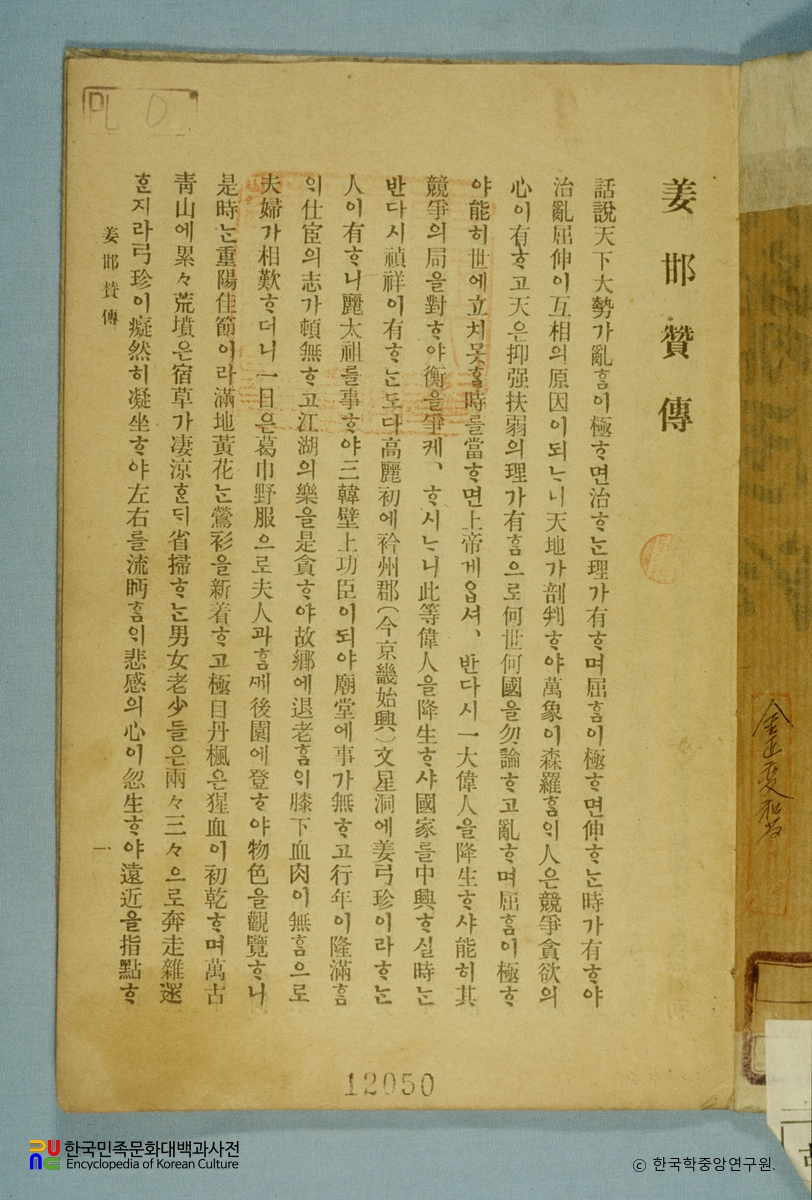 姜邯贊傳
話說天下大勢가亂홈이極ᄒᆞ면治ᄒᆞᄂᆞᆫ理가有ᄒᆞ며屈홈이極ᄒᆞ면伸ᄒᆞᄂᆞᆫ時가有ᄒᆞ야
治亂屈伸이互相의原因이되ᄂᆞ니天地가剖判ᄒᆞ야萬象이森羅홈ᄋᆡ人은競爭貪欲의
心이有ᄒᆞ고天은抑强扶弱의理가有홈으로何世何國을勿論ᄒᆞ고亂ᄒᆞ며屈홈이極ᄒᆞ
야能히世에立치못ᄒᆞᆯ時를當ᄒᆞ면上帝게옵셔、반다시一大偉人을降生ᄒᆞ샤能히其
競爭의局을對ᄒᆞ야衡을爭케、ᄒᆞ시ᄂᆞ니此等偉人을降生ᄒᆞ샤國家를中興ᄒᆞ실時ᄂᆞᆫ
반다시禎祥이有ᄒᆞᄂᆞᆫ도다高麗初에衿州郡(今京畿始興)文星洞에姜弓珍이라ᄒᆞᄂᆞᆫ
人이有ᄒᆞ니麗太祖를事ᄒᆞ야三韓壁上功臣이되야廟堂에事가無ᄒᆞ고行年이隆滿홈
ᄋᆡ仕宦의志가頓無ᄒᆞ고江湖의樂을是貪ᄒᆞ야故鄕에退老홈ᄋᆡ膝下血肉이無홈으로
夫婦가相歎ᄒᆞ더니一日은葛巾野服으로夫人과홈ᄭᅦ後園에登ᄒᆞ야物色을觀覽ᄒᆞ니
是時ᄂᆞᆫ重陽佳節이라滿地黃花ᄂᆞᆫ鶯衫을新着ᄒᆞ고極目丹楓은猩血이初乾ᄒᆞ며萬古
靑山에累々荒墳은宿草가凄涼ᄒᆞᆫᄃᆡ省掃ᄒᆞᄂᆞᆫ男女老少들은兩々三々으로奔走雜遝
ᄒᆞᆫ지라弓珍이癡然히凝坐ᄒᆞ야左右를流眄홈ᄋᆡ悲感의心이忽生ᄒᆞ야遠近을指點ᄒᆞ
姜邯贊傳
一
12050
한국민족문화대백과사전
Encyclopedia of Korean Culture
© 한국학중앙연구원.